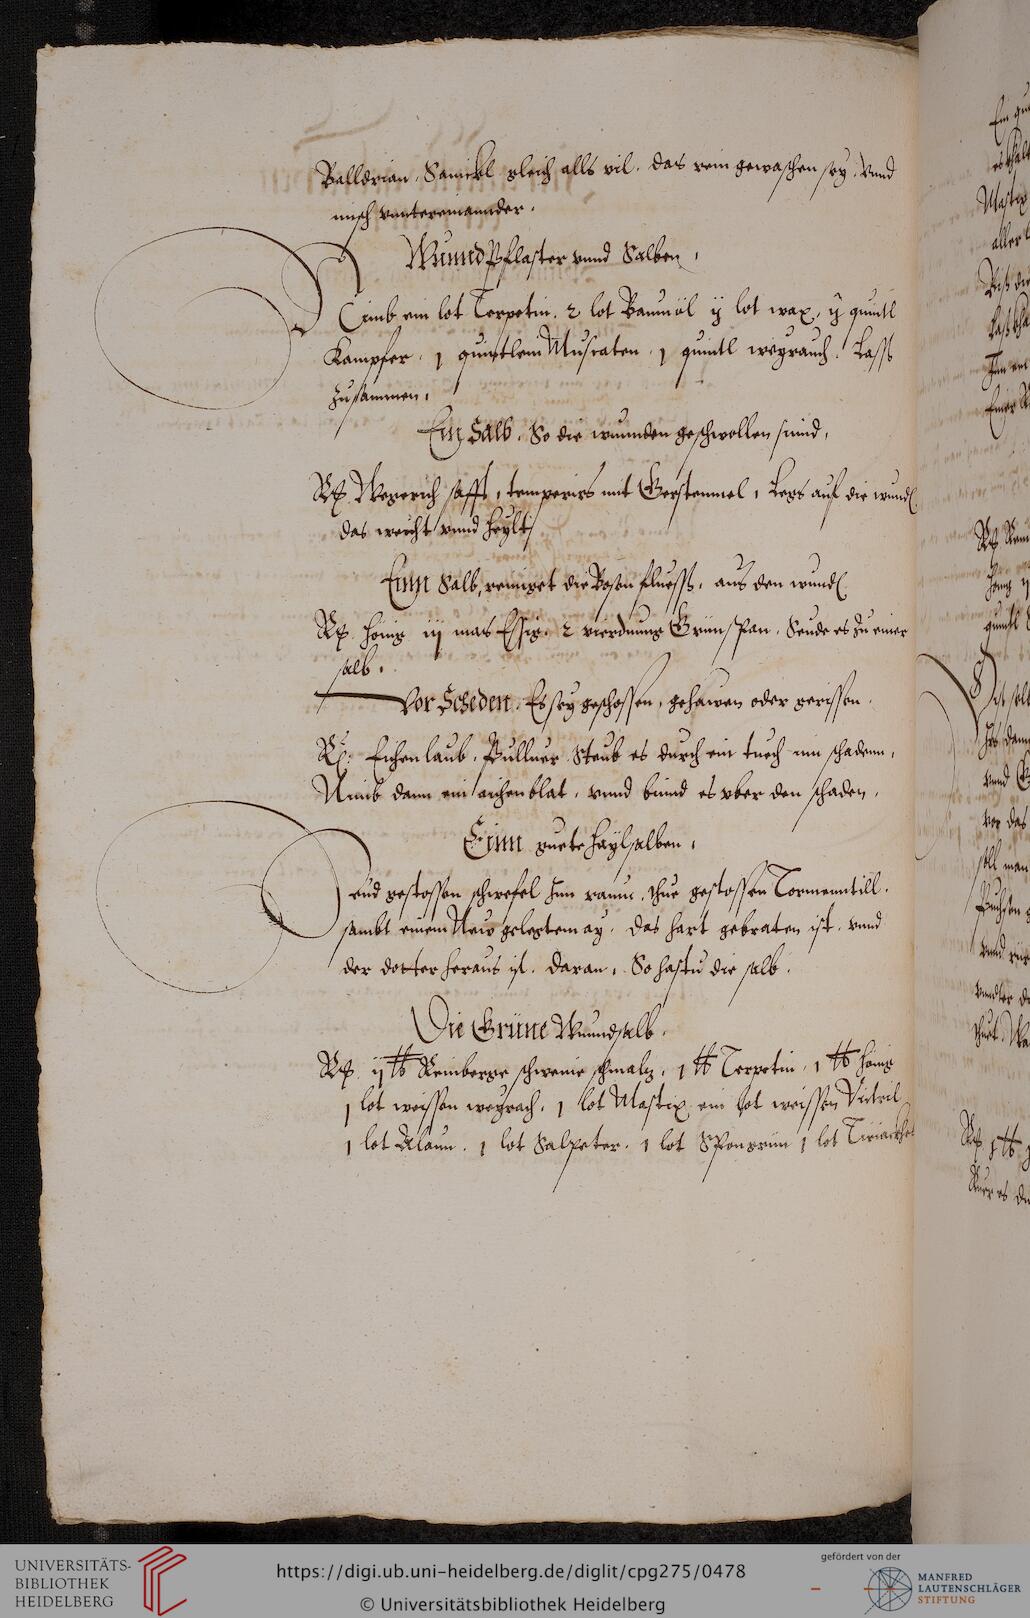 Balldrian, Sanickl gleich alls vil. das rein gewaschen sey. vnnd
misch vnntereinannder.
Wunnd Pflaster vnnd Salben.
Nimb ein lot Terpetin. 2 lot Baumöl ij lot wax, ij quintl
Kampfer. 1 quintlein Muscaten. 1 quintl weyrauch. Lasß
zusammen.
Ein Salb. So die wunnden geschwollen sind.
Rp Wegerich safft, temperirs mit Gerstenmel, Legs auf die wund
das weicht vnnd heylt
Einn Salb, reiniget die Bosen fluesß. aus den wund
Rp honig iij mas Essig. 2 vierdnung Grünspan. Seude es zu einer
salb.
Vor Scheden. Es sey geschossen, gehawen oder gerissen.
Rp: Eichenlaub. Pulluer Steub es durch ein tuech inn schadenn,
Nimb dann ein aichenblat, vnnd bind es vber den schaden.
Einn guete haylsalben.
gestossen schwefel Inn raum, thue gestossen Tormenntill.
sambt einem New gelegtem ay. das hart gebraten ist. vnnd
der dotter heraus ist. daran. So hastu die salb.
Die Grüne Wunndsalb.
Rp ij ℔ Reinberge schweine schmalz. 1 ℔ Terpetin. 1 ℔ honig
1 lot weissen weyrach. 1 lot Mastix ein lot weissen Victril
1 lot Alaun. 1 lot Salpeter. 1 lot Spongrün 1 lot
UNIVERSITÄTS-
BIBLIOTHEK
HEIDELBERG
https://digi.ub.uni-heidelberg.de/diglit/cpg275/0478
© Universitätsbibliothek Heidelberg
gefördert von der
MANFRED
LAUTENSCHLÄGER
STIFTUNG